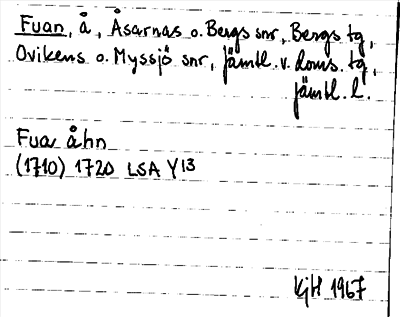 Fuan, å, Åsarnas o. Bergs snr, Bergs tg,
Ovikens o. Myssjö snr, Jämtl. v. doms. tg,
Jämtl. l.
Fua åhn
(1710) 1720 LSA Y13
KjH 1967